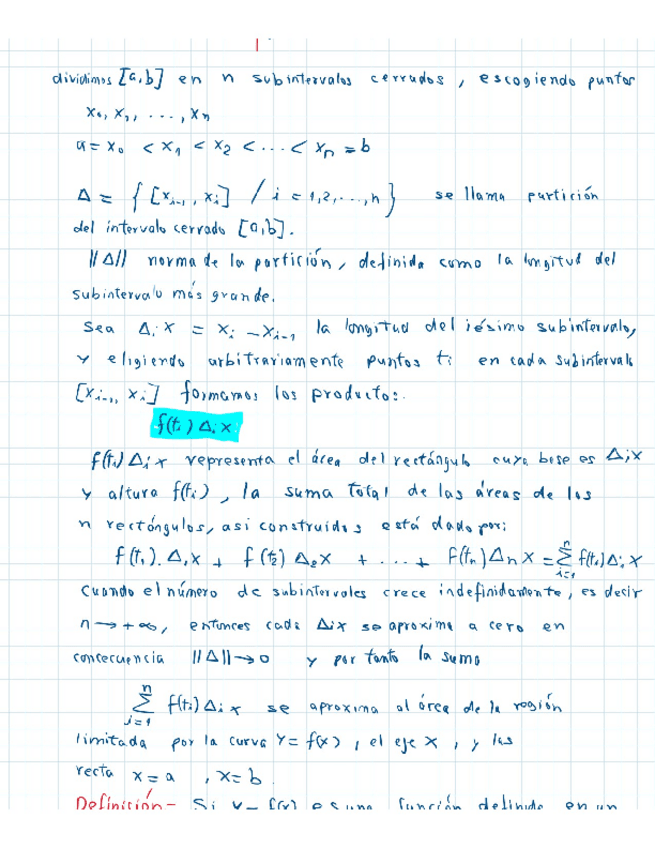 dividimos [a,b] en n subintervalos cerrados, escogiendo puntos
x₀, x₁, ..., xₙ
a = x₀ < x₁ < x₂ < ... < xₙ = b
Δ = { [xᵢ₋₁, xᵢ] / i = 1,2,...,n } se llama partición
del intervalo cerrado [a,b].
||Δ|| norma de la partición, definida como la longitud del
subintervalo más grande.
Sea Δᵢx = xᵢ - xᵢ₋₁ la longitud del iésimo subintervalo,
y eligiendo arbitrariamente puntos tᵢ en cada subintervalo
[xᵢ₋₁, xᵢ] formamos los productos.
f(tᵢ) Δᵢx
f(tᵢ) Δᵢx representa el área del rectángulo cuya base es Δᵢx
y altura f(tᵢ), la suma total de las áreas de los
n rectángulos, asi construidos está dado por:
f(t₁).Δ₁x + f(t₂) Δ₂x + ... + f(tₙ)Δₙx = Σⁿᵢ₌₁ f(tᵢ)Δᵢx
Cuando el número de subintervalos crece indefinidamente, es decir
n → +∞, entonces cada Δᵢx se aproxima a cero en
concecuencia ||Δ|| → 0 y por tanto la suma
Σⁿᵢ₌₁ f(tᵢ) Δᵢx se aproxima al área de la región
limitada por la curva y = f(x), el eje x, y las
recta x = a , x = b.
Definición- Si y = f(x) es una función definida en un